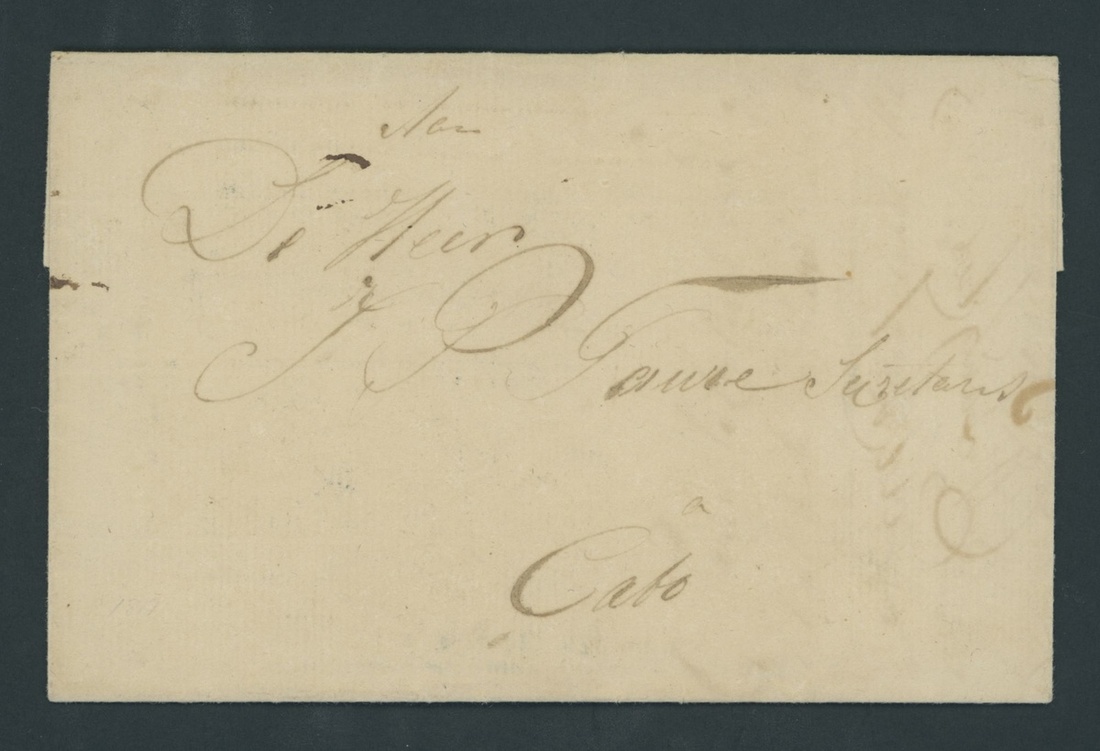 Aan
De Heer
J P Faure Secretaris
a
Cabo